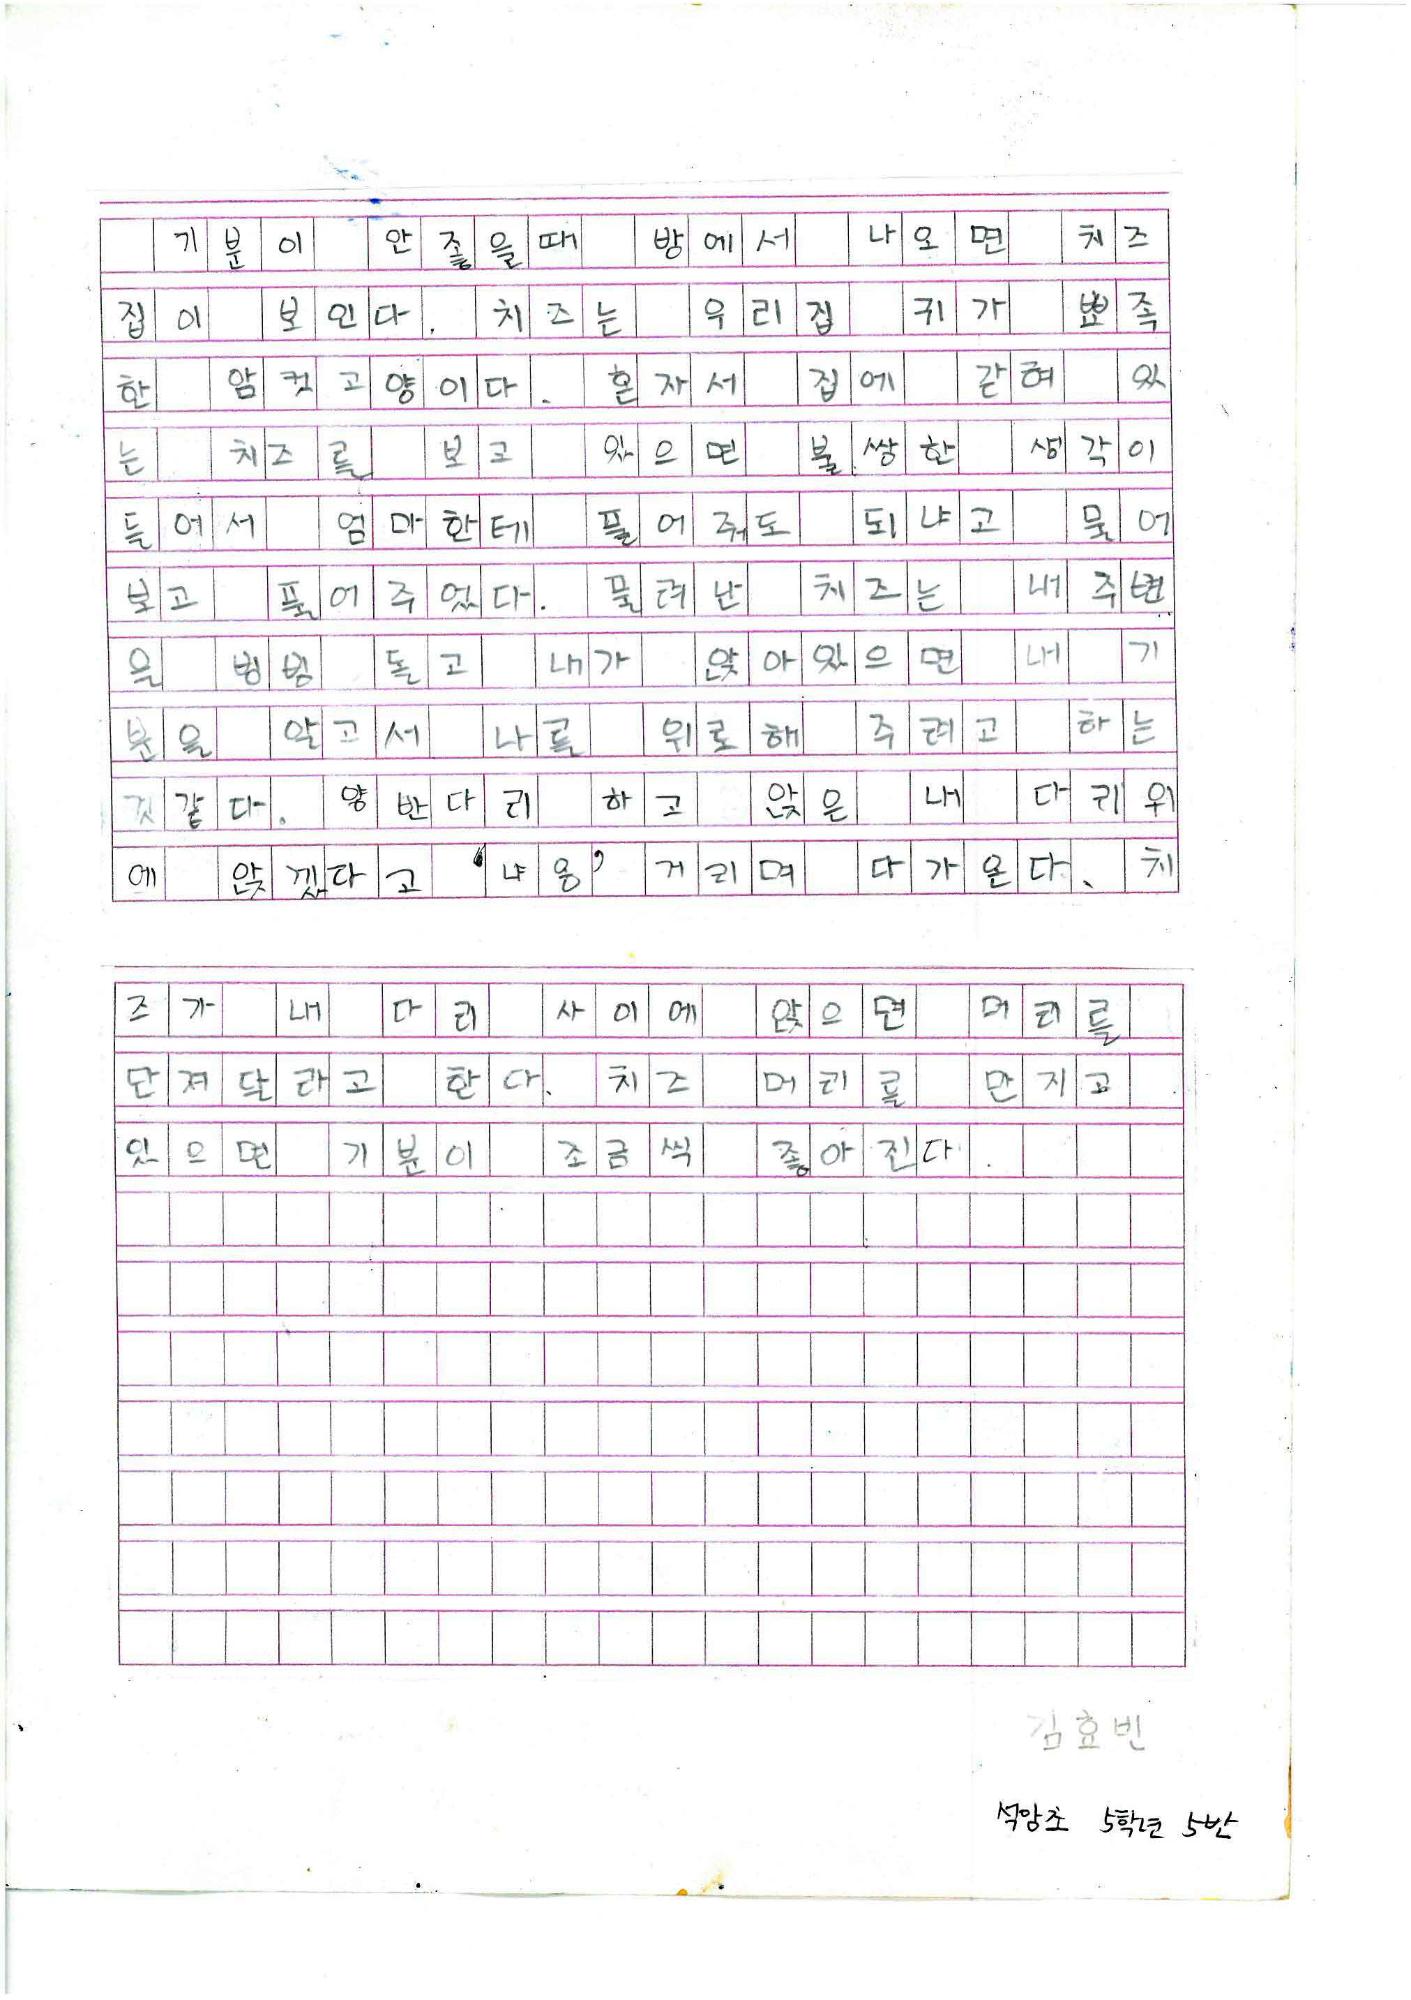 기분이 안 좋을때 방에서 나오면 치즈
집이 보인다. 치즈는 우리집 귀가 뾰족
한 암컷고양이다. 혼자서 집에 갇혀 있
는 치즈를 보고 있으면 불쌍한 생각이
들어서 엄마한테 풀어줘도 되냐고 물어
보고 풀어주었다. 풀려난 치즈는 내주변
을 빙빙 돌고 내가 앉아있으면 내 기
분을 알고서 나를 위로해 주려고 하는
것같다. 양반다리 하고 앉은 내 다리위
에 앉겠다고 '냐옹' 거리며 다가온다. 치
즈가 내 다리 사이에 앉으면 머리를
만져달라고 한다. 치즈 머리를 만지고
있으면 기분이 조금씩 좋아진다.
김효빈
석암초 5학년 5반